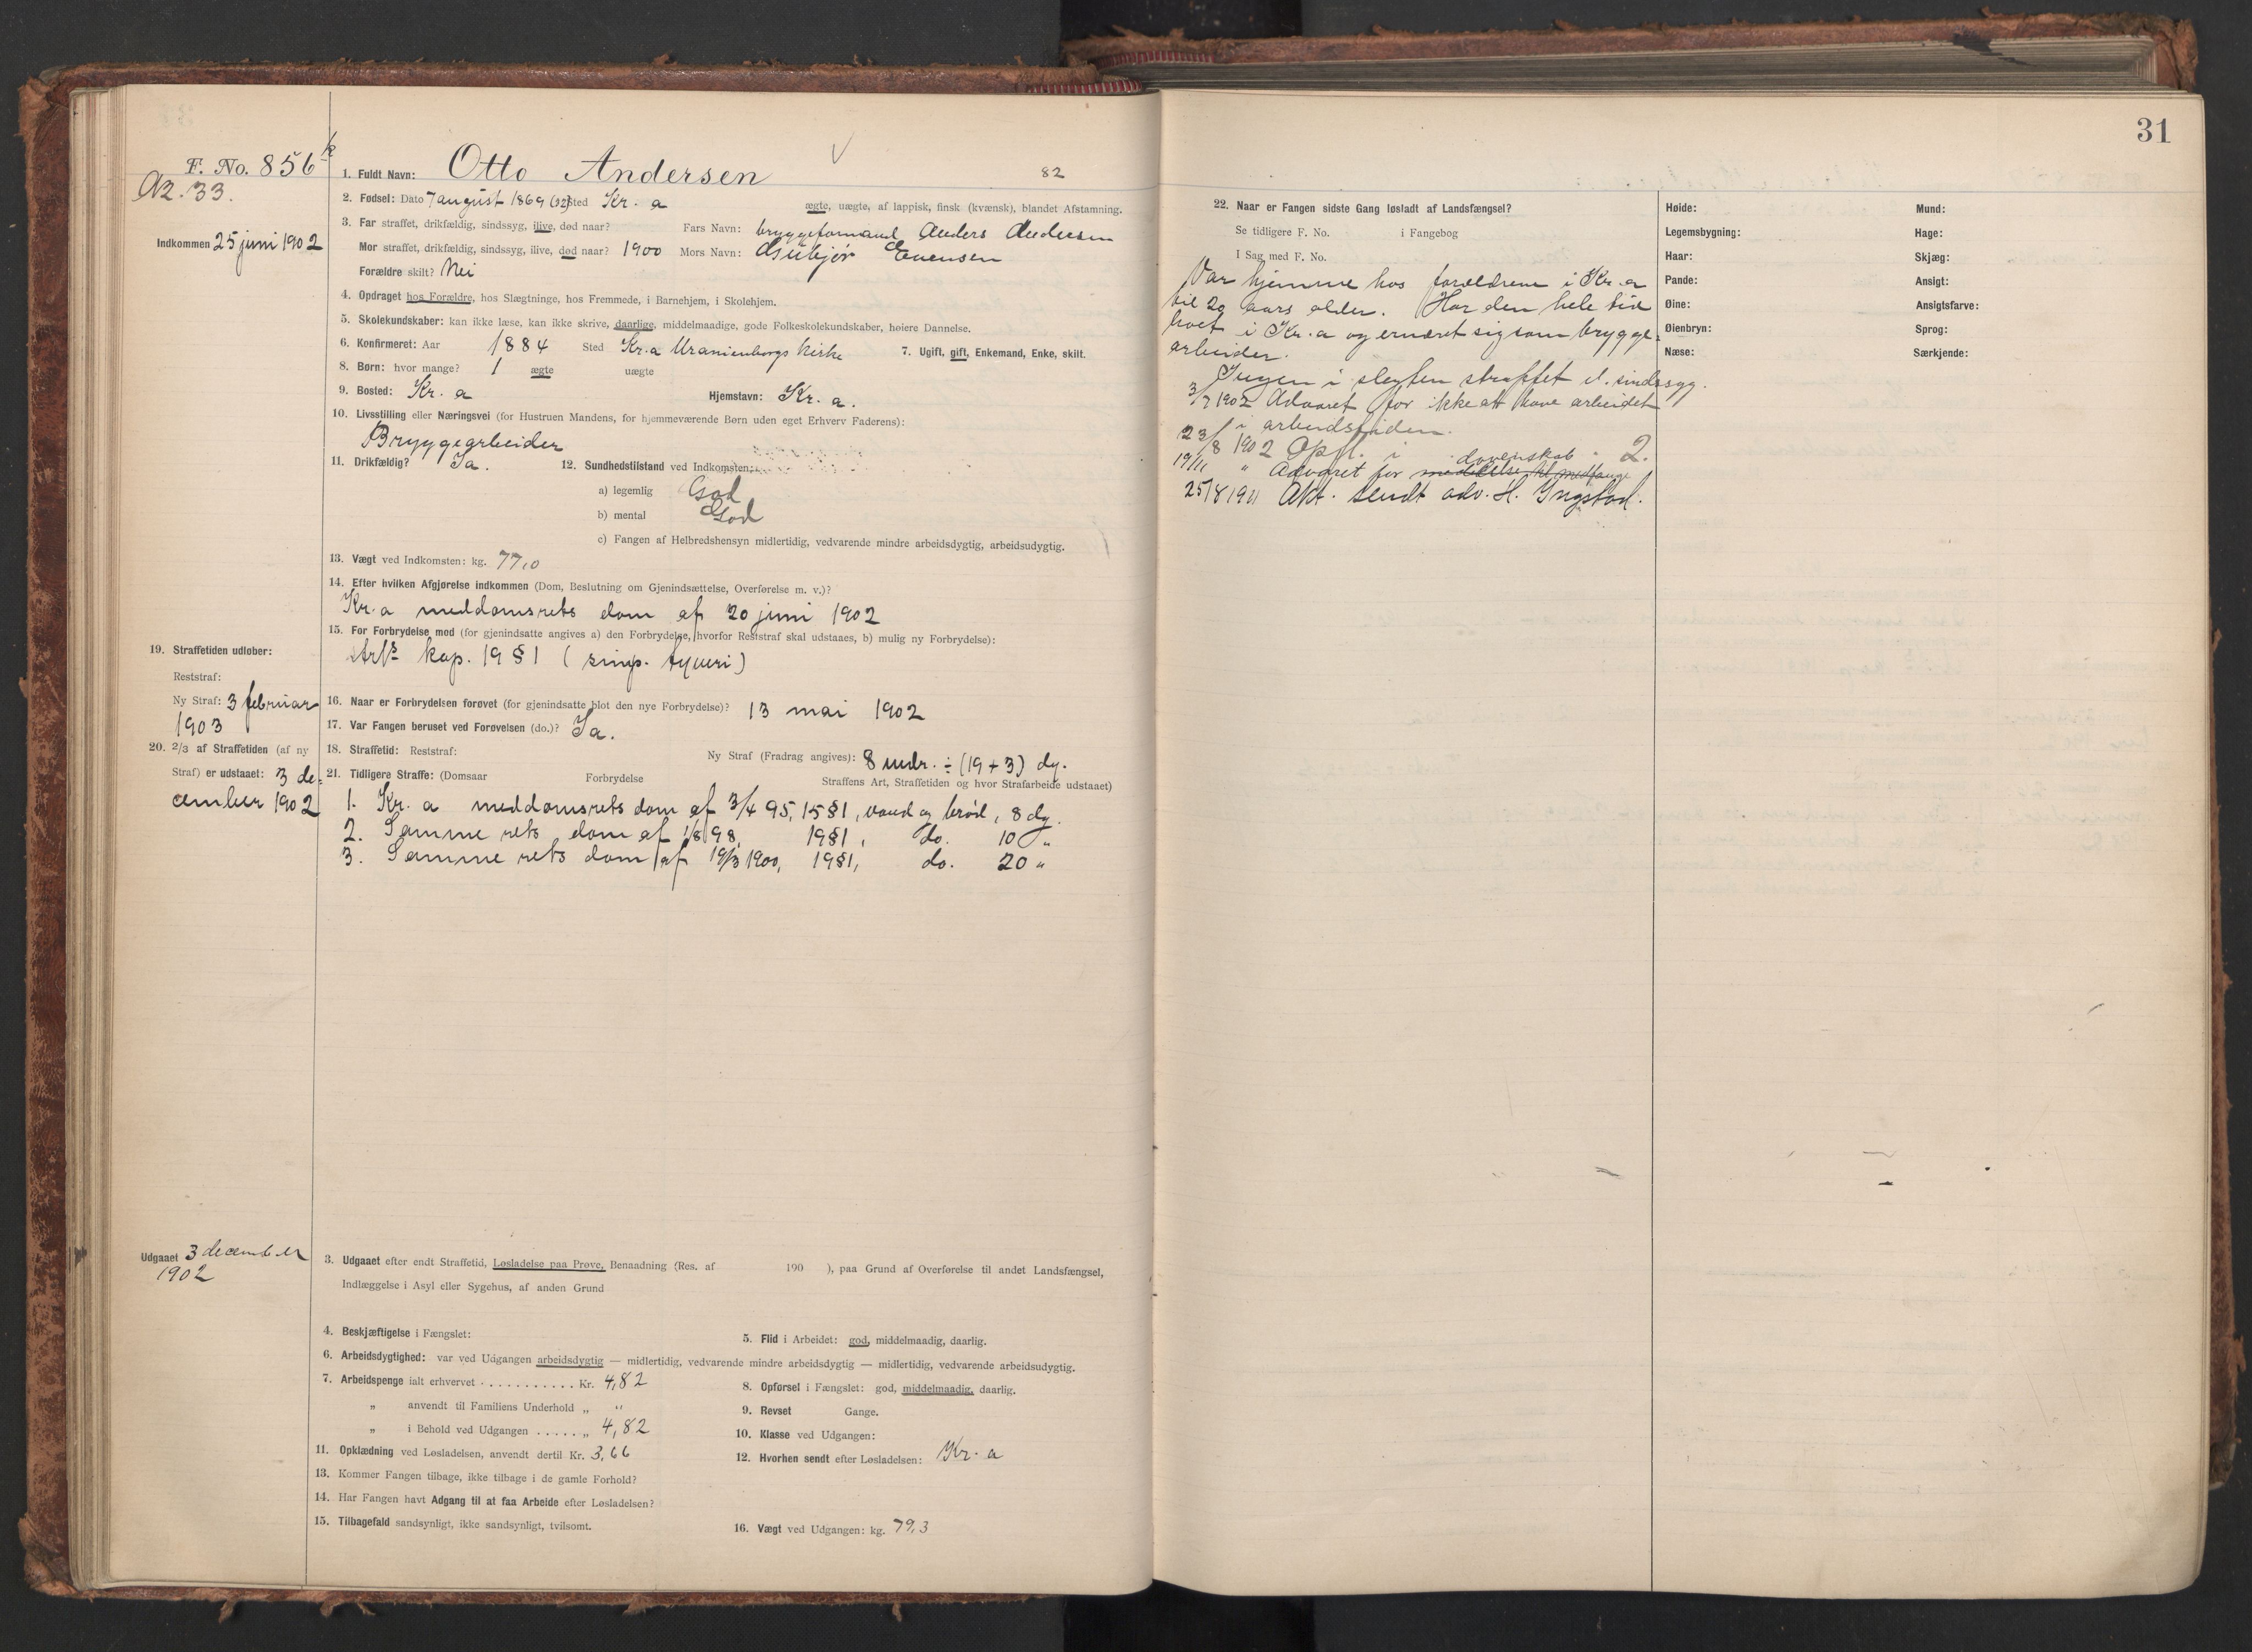 31
F. No. 856
A2. 33.
1. Fuldt Navn: Otto Andersen
82
Indkommen 25 juni 1902
2. Fødsel: Dato 7 august 1869 (32) Sted Kr.a ægte, uægte, af lappisk, finsk (kvænsk), blandet Afstamning.
3. Far straffet, drikfældig, sindssyg, ilive, død naar? Fars Navn: bryggeformand Anders Andersen
Mor straffet, drikfældig, sindssyg, ilive, død naar? 1900 Mors Navn: Evensen
Forældre skilt? Nei
4. Opdraget hos Forældre, hos Slægtninge, hos Fremmede, i Barnehjem, i Skolehjem.
5. Skolekundskaber: kan ikke læse, kan ikke skrive, daarlige, middelmaadige, gode Folkeskolekundskaber, høiere Dannelse.
6. Konfirmeret: Aar 1884 Sted Kr.a Uranienborgs kirke 7. Ugift, gift, Enkemand, Enke, skilt.
8. Børn: hvor mange? 1 ægte uægte
9. Bosted: Kr. a Hjemstavn: Kr. a.
10. Livsstilling eller Næringsvei (for Hustruen Mandens, for hjemmeværende Børn uden eget Erhverv Faderens):
Bryggearbeider
11. Drikfældig? Ja. 12. Sundhedstilstand ved Indkomsten:
a) legemlig God
b) mental God
c) Fangen af Helbredshensyn midlertidig, vedvarende mindre arbeidsdygtig, arbeidsudygtig.
13. Vægt ved Indkomsten: kg. 77,0
14. Efter hvilken Afgjørelse indkommen (Dom, Beslutning om Gjenindsættelse, Overførelse m. v.)?
Kr.a meddomsrets dom af 20 juni 1902
15. For Forbrydelse mod (for gjenindsatte angives a) den Forbrydelse, hvorfor Reststraf skal udstaaes, b) mulig ny Forbrydelse):
kap. 19 § 1 (simp. tyveri)
19. Straffetiden udløber:
Reststraf:
Ny Straf: 3 februar
1903
16. Naar er Forbrydelsen forøvet (for gjenindsatte blot den nye Forbrydelse)? 13 mai 1902
17. Var Fangen beruset ved Forøvelsen (do.)? Ja.
20. 2/3 af Straffetiden (af ny
Straf) er udstaaet: 3 de-
cember 1902
18. Straffetid: Reststraf: Ny Straf (Fradrag angives): 8 mdr. ÷ (19 + 3) dg.
21. Tidligere Straffe: (Domsaar Forbrydelse Straffens Art, Straffetiden og hvor Strafarbeide udstaaet)
1. Kr. a meddomsrets dom af 3/4 95, 15 § 1, vand og brød, 8 dg.
2. Samme rets dom af 1/8 98, 19 § 1, do. 10 "
3. Samme rets dom af 19/3 1900, 19 § 1, do. 20 "
Udgaaet 3 december
1902
3. Udgaaet efter endt Straffetid, Løsladelse paa Prøve, Benaadning (Res. af 190 ), paa Grund af Overførelse til andet Landsfængsel,
Indlæggelse i Asyl eller Sygehus, af anden Grund
4. Beskjæftigelse i Fængslet: 5. Flid i Arbeidet: god, middelmaadig, daarlig.
6. Arbeidsdygtighed: var ved Udgangen arbeidsdygtig — midlertidig, vedvarende mindre arbeidsdygtig — midlertidig, vedvarende arbeidsudygtig.
7. Arbeidspenge ialt erhvervet . . . . . . . . . . . Kr. 4,82 8. Opførsel i Fængslet: god, middelmaadig, daarlig.
„ anvendt til Familiens Underhold „ " 9. Revset Gange.
„ i Behold ved Udgangen . . . . . „ 4,82 10. Klasse ved Udgangen:
11. Opklædning ved Løsladelsen, anvendt dertil Kr. 3,66 12. Hvorhen sendt efter Løsladelsen: Kr. a
13. Kommer Fangen tilbage, ikke tilbage i de gamle Forhold?
14. Har Fangen havt Adgang til at faa Arbeide efter Løsladelsen?
15. Tilbagefald sandsynligt, ikke sandsynligt, tvilsomt. 16. Vægt ved Udgangen: kg. 79,3
22. Naar er Fangen sidste Gang løsladt af Landsfængsel?
Se tidligere F. No. i Fangebog
I Sag med F. No.
Var hjemme hos forældrene i Kr. a
til 20 aars alder. Har den hele tid
boet i Kr. a og ernæret sig som brygge-
arbeider.
Ingen i slegten straffet el. sindssyg.
3/7 1902 Advaret for ikke at have arbeidet
i arbeidstiden.
23/8 1902 Opfl. i dovenskab. 2.
19/11 " Advaret for meddelelse til medfange
25/8 1911 Akt. sendt adv. H. Ingstad.
Høide: Mund:
Legemsbygning: Hage:
Haar: Skjæg:
Pande: Ansigt:
Øine: Ansigtsfarve:
Øienbryn: Sprog:
Næse: Særkjende: